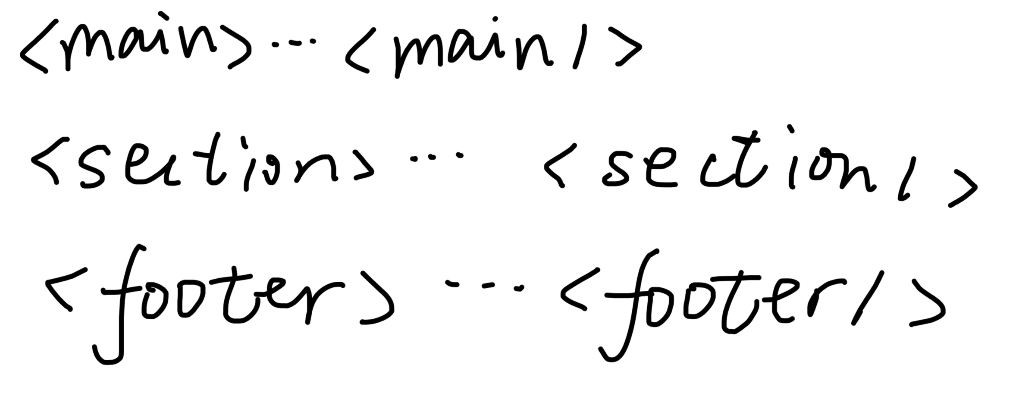 <main>...<main/>
<section>...<section/>
<footer>...<footer/>